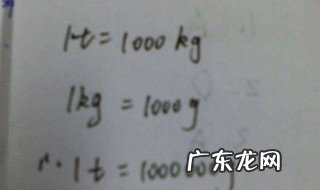 1t = 1000 kg
1kg = 1000 g
1t = 1000 00
广东龙网